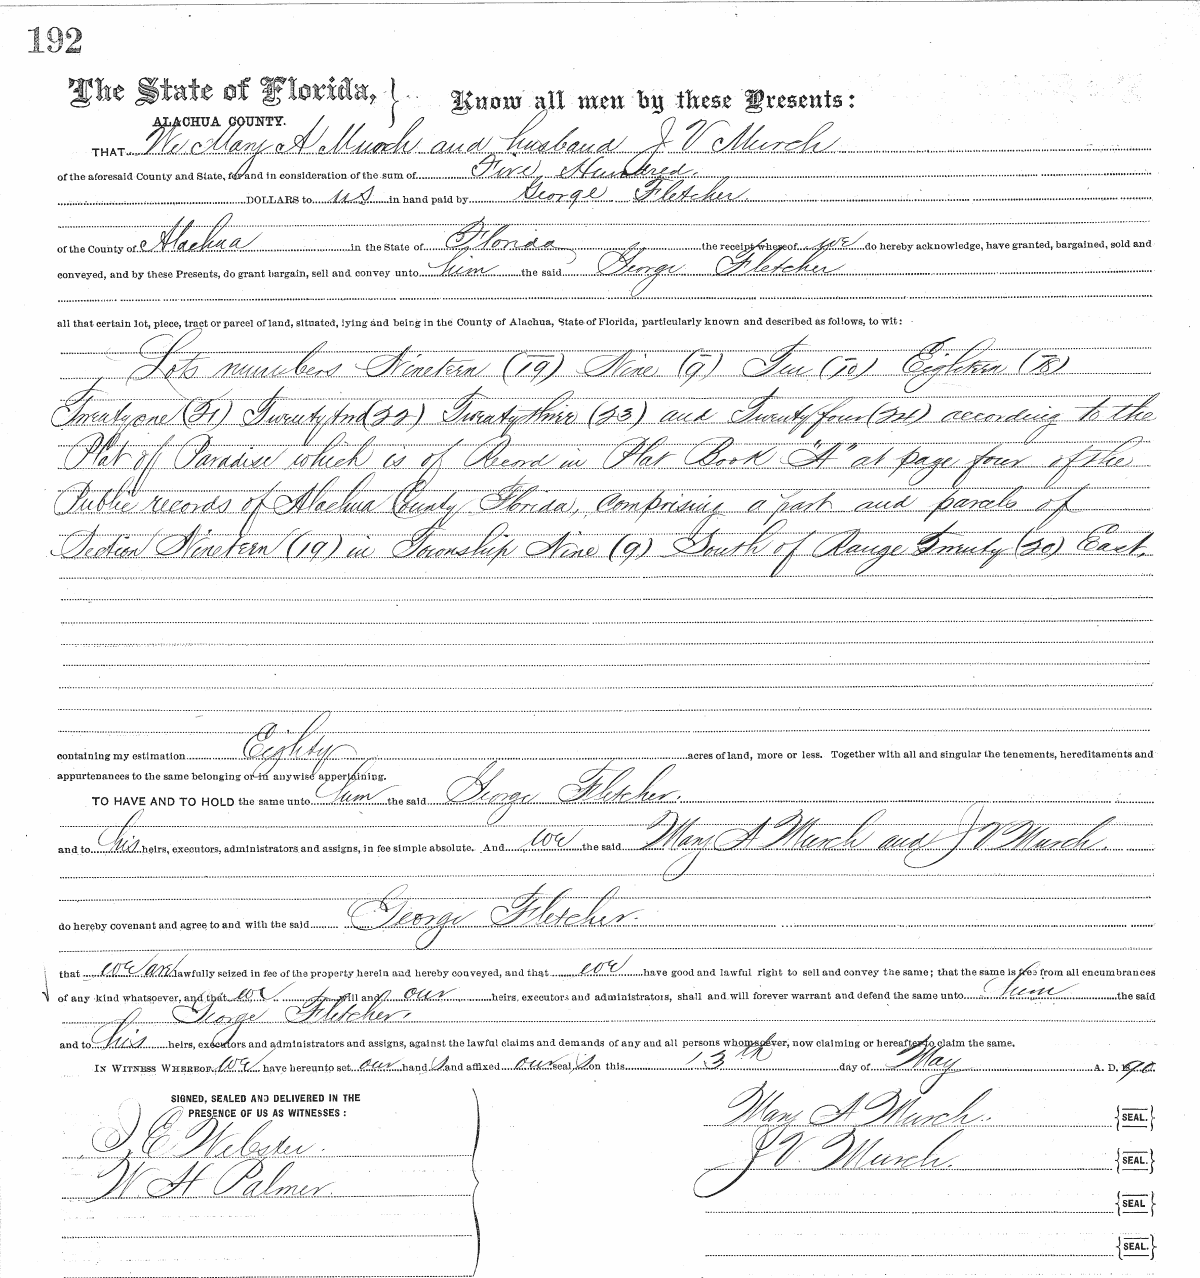 192
The State of Florida, } Know all men by these Presents:
ALACHUA COUNTY.
THAT We Mary A Murch and husband J V Murch
of the aforesaid County and State, for and in consideration of the sum of Five Hundred.
DOLLARS to us in hand paid by George Fletcher.
of the County of Alachua in the State of Florida the receipt whereof we do hereby acknowledge, have granted, bargained, sold and
conveyed, and by these Presents, do grant bargain, sell and convey unto him the said George Fletcher
all that certain lot, piece, tract or parcel of land, situated, lying and being in the County of Alachua, State of Florida, particularly known and described as follows, to wit:
Lots numbers Nineteen (19) Nine (9) Ten (10) Eighteen (18)
Twenty one (21) Twenty two (22) Twenty three (23) and Twenty four (24) according to the
Plat of Paradise which is of Record in Plat Book "A" at page four of the
Public records of Alachua County Florida, comprising a part and parcels of
Section Nineteen (19) in Township Nine (9) South of Range Twenty (20) East.
containing my estimation Eighty acres of land, more or less. Together with all and singular the tenements, hereditaments and
appurtenances to the same belonging or in anywise appertaining.
TO HAVE AND TO HOLD the same unto him the said George Fletcher.
and to his heirs, executors, administrators and assigns, in fee simple absolute. And we the said Mary A Murch and J V Murch.
do hereby covenant and agree to and with the said George Fletcher.
that we are lawfully seized in fee of the property herein and hereby conveyed, and that we have good and lawful right to sell and convey the same; that the same is free from all encumbrances
of any kind whatsoever, and that we will and our heirs, executors and administrators, shall and will forever warrant and defend the same unto him the said
George Fletcher.
and to his heirs, executors and administrators and assigns, against the lawful claims and demands of any and all persons whomsoever, now claiming or hereafter to claim the same.
IN WITNESS WHEREOF, we have hereunto set our hands and affixed our seals on this 13th day of May A. D. 1890.
SIGNED, SEALED AND DELIVERED IN THE
PRESENCE OF US AS WITNESSES:
Mary A Murch. {SEAL.}
J E Webster.
J V. Murch. {SEAL.}
W H Palmer.
{SEAL}
{SEAL.}